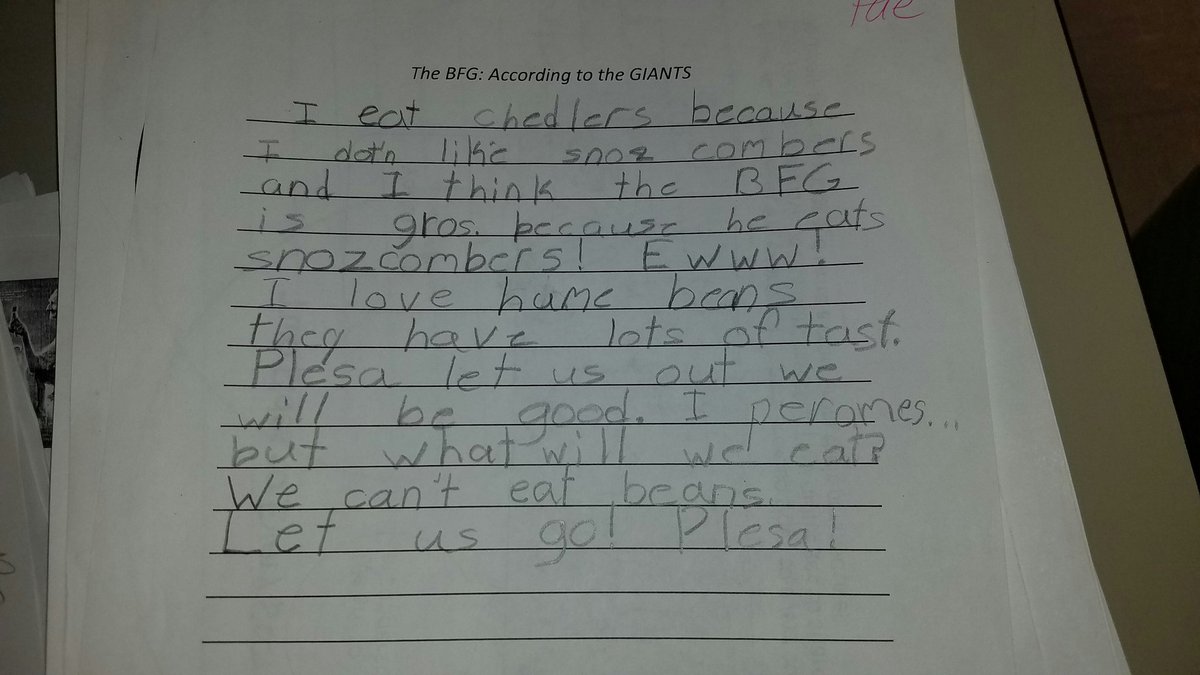 The BFG: According to the GIANTS
I eat chedlers because
I dot'n like snoz combers
and I think the BFG
is gros. because he eats
snozcombers! Ewww!
I love hume beans
they have lots of tast.
Plesa let us out we
will be good. I peromes...
but what will we eat?
We can't eat beans.
Let us go! Plesa!